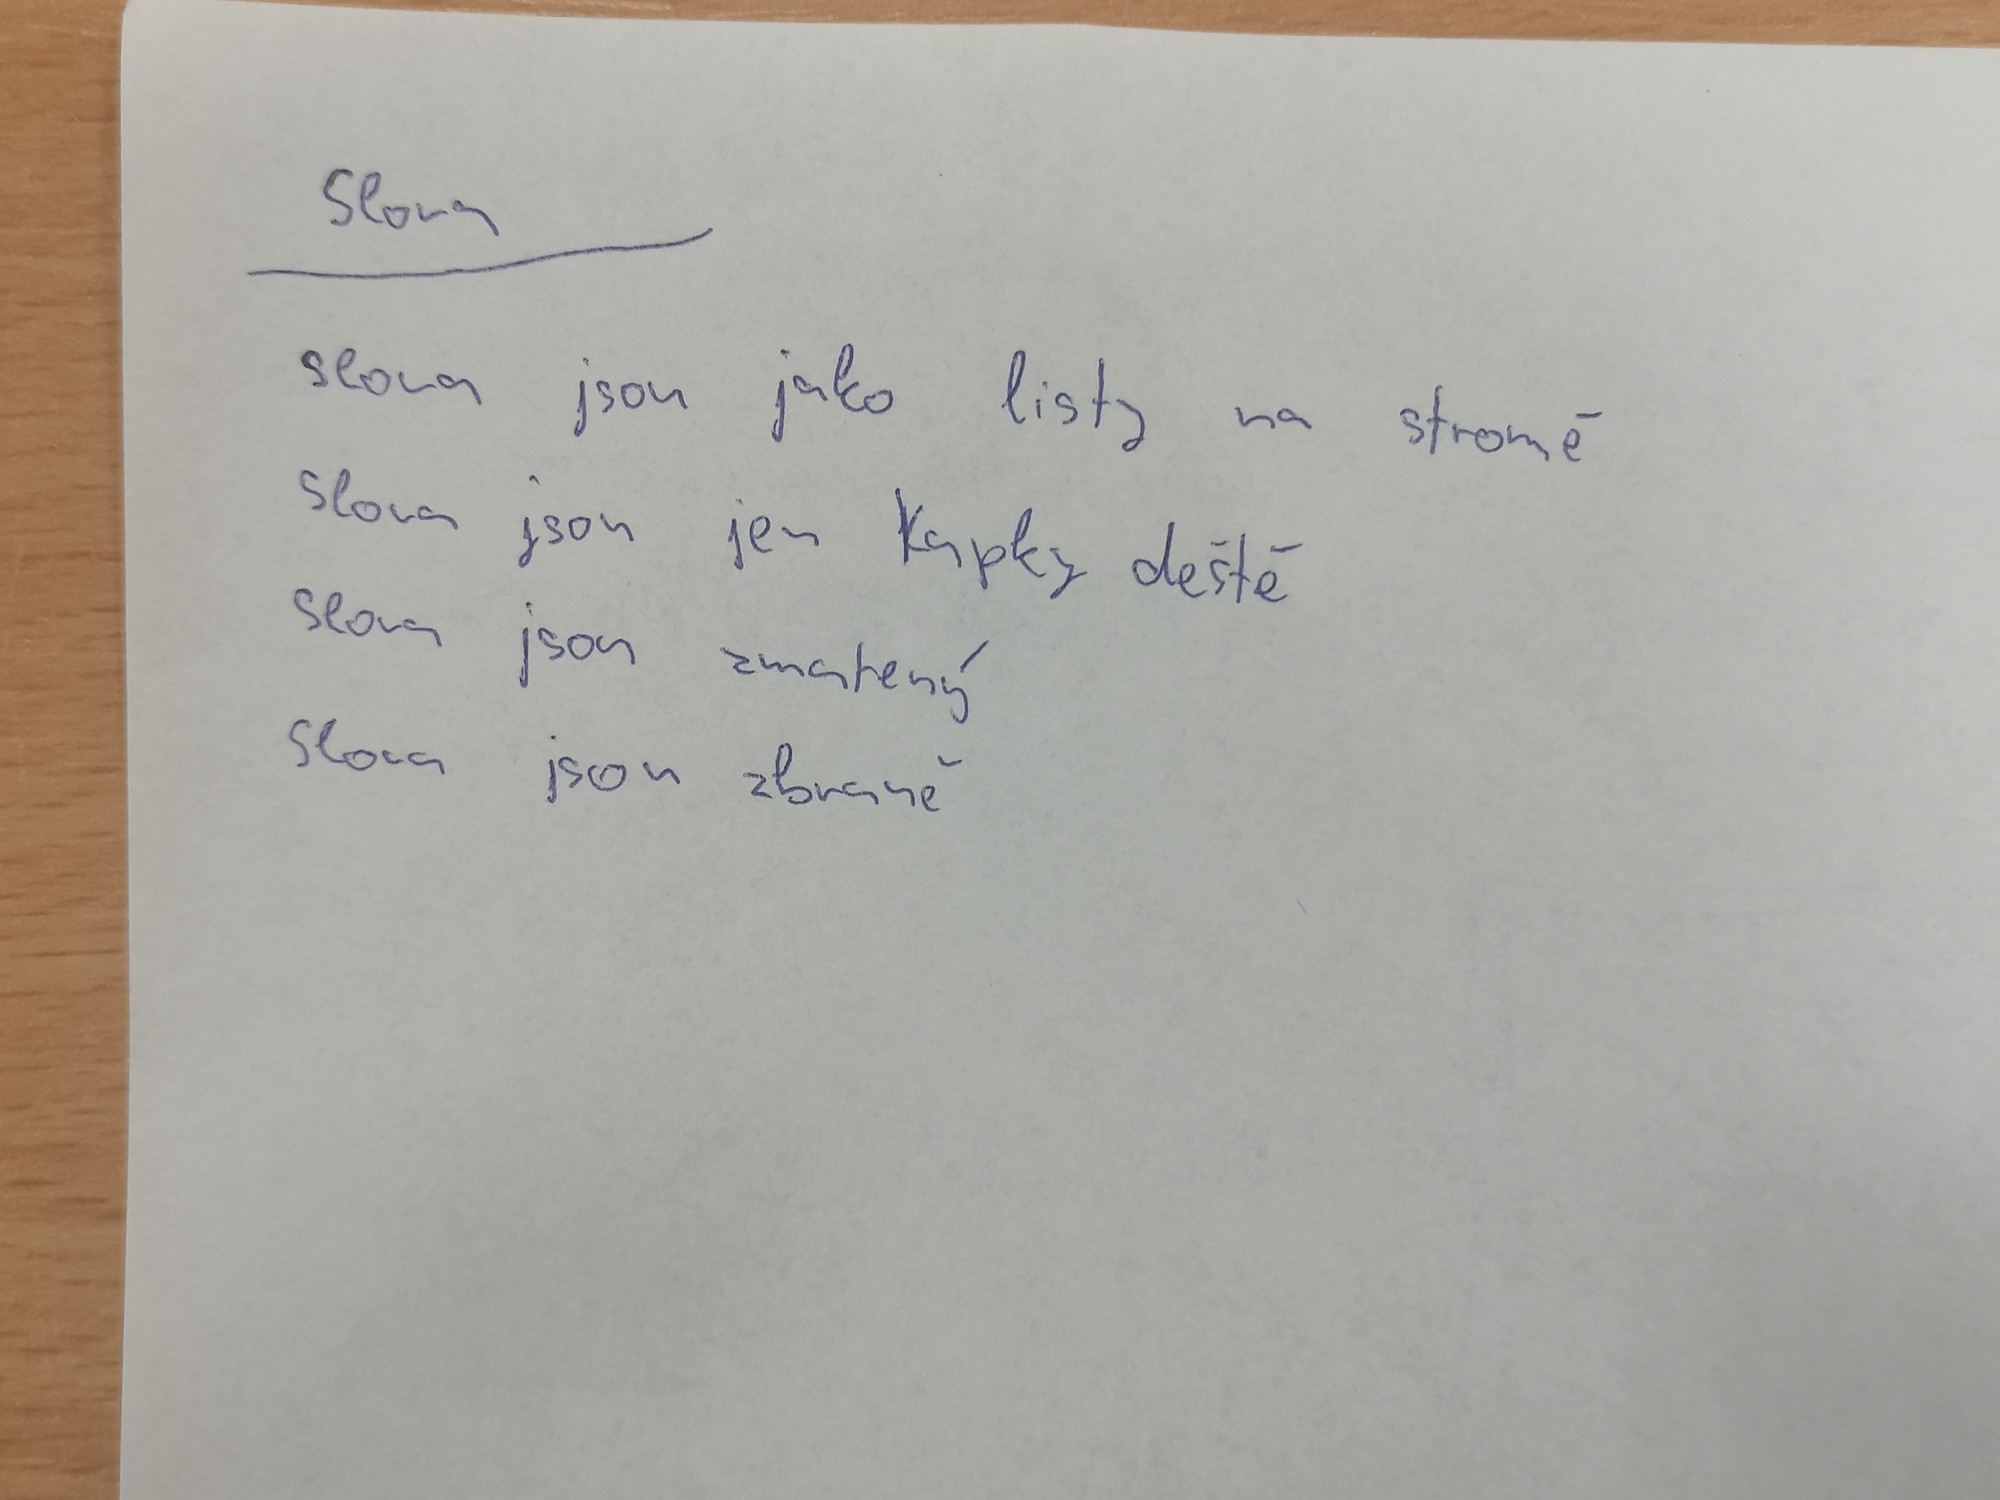 Slova
slova jsou jako listy na stromě
Slova jsou jen Kapky deště
Slova jsou zmatený
Slova jsou zbraně